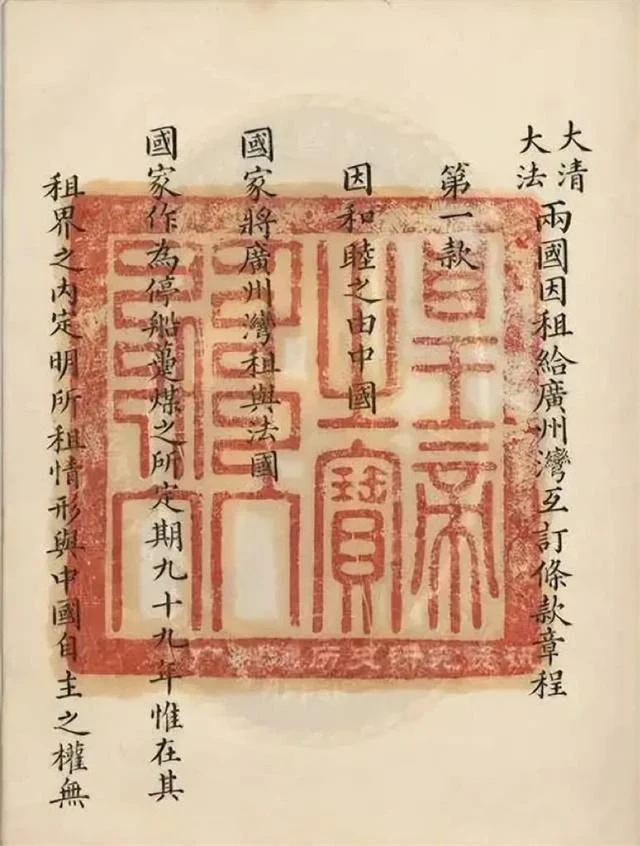 大清
大法
兩國因租給廣州灣互訂條款章程
第一款
因和睦之由中國
國家將廣州灣租與法國
國家作為停船躉煤之所定期九十九年惟在其
租界之內定明所租情形與中國自主之權無
皇帝
之寶